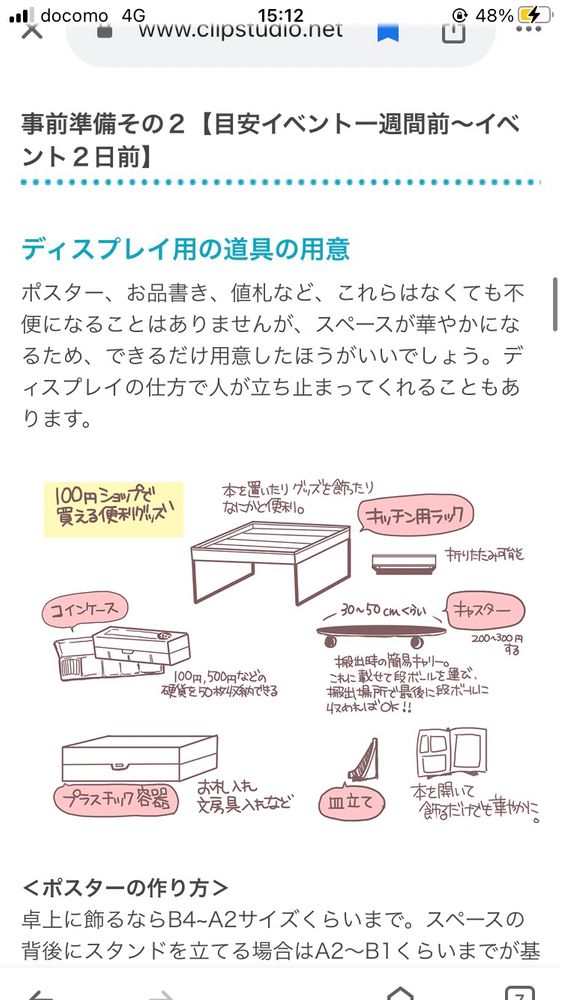 docomo 4G 15:12 48%
www.clipstudio.net
事前準備その２【目安イベント一週間前～イベ
ント２日前】
ディスプレイ用の道具の用意
ポスター、お品書き、値札など、これらはなくても不
便になることはありませんが、スペースが華やかにな
るため、できるだけ用意したほうがいいでしょう。デ
ィスプレイの仕方で人が立ち止まってくれることもあ
ります。
100円ショップで
買える便利グッズ
本を置いたりグッズを飾ったり
なにかと便利。
キッチン用ラック
折りたたみ可能
コインケース
100円,500円などの
硬貨を50枚収納できる
30～50cmくらい
キャスター
200～300円
する
搬出時の簡易キャリー。
これに載せて段ボールを運び、
搬出場所で最後に段ボールに
収めればOK!!
プラスチック容器
お札入れ
文房具入れなど
皿立て
本を開いて
飾るだけでも華やかに。
＜ポスターの作り方＞
卓上に飾るならB4~A2サイズくらいまで。スペースの
背後にスタンドを立てる場合はA2～B1くらいまでが基
7